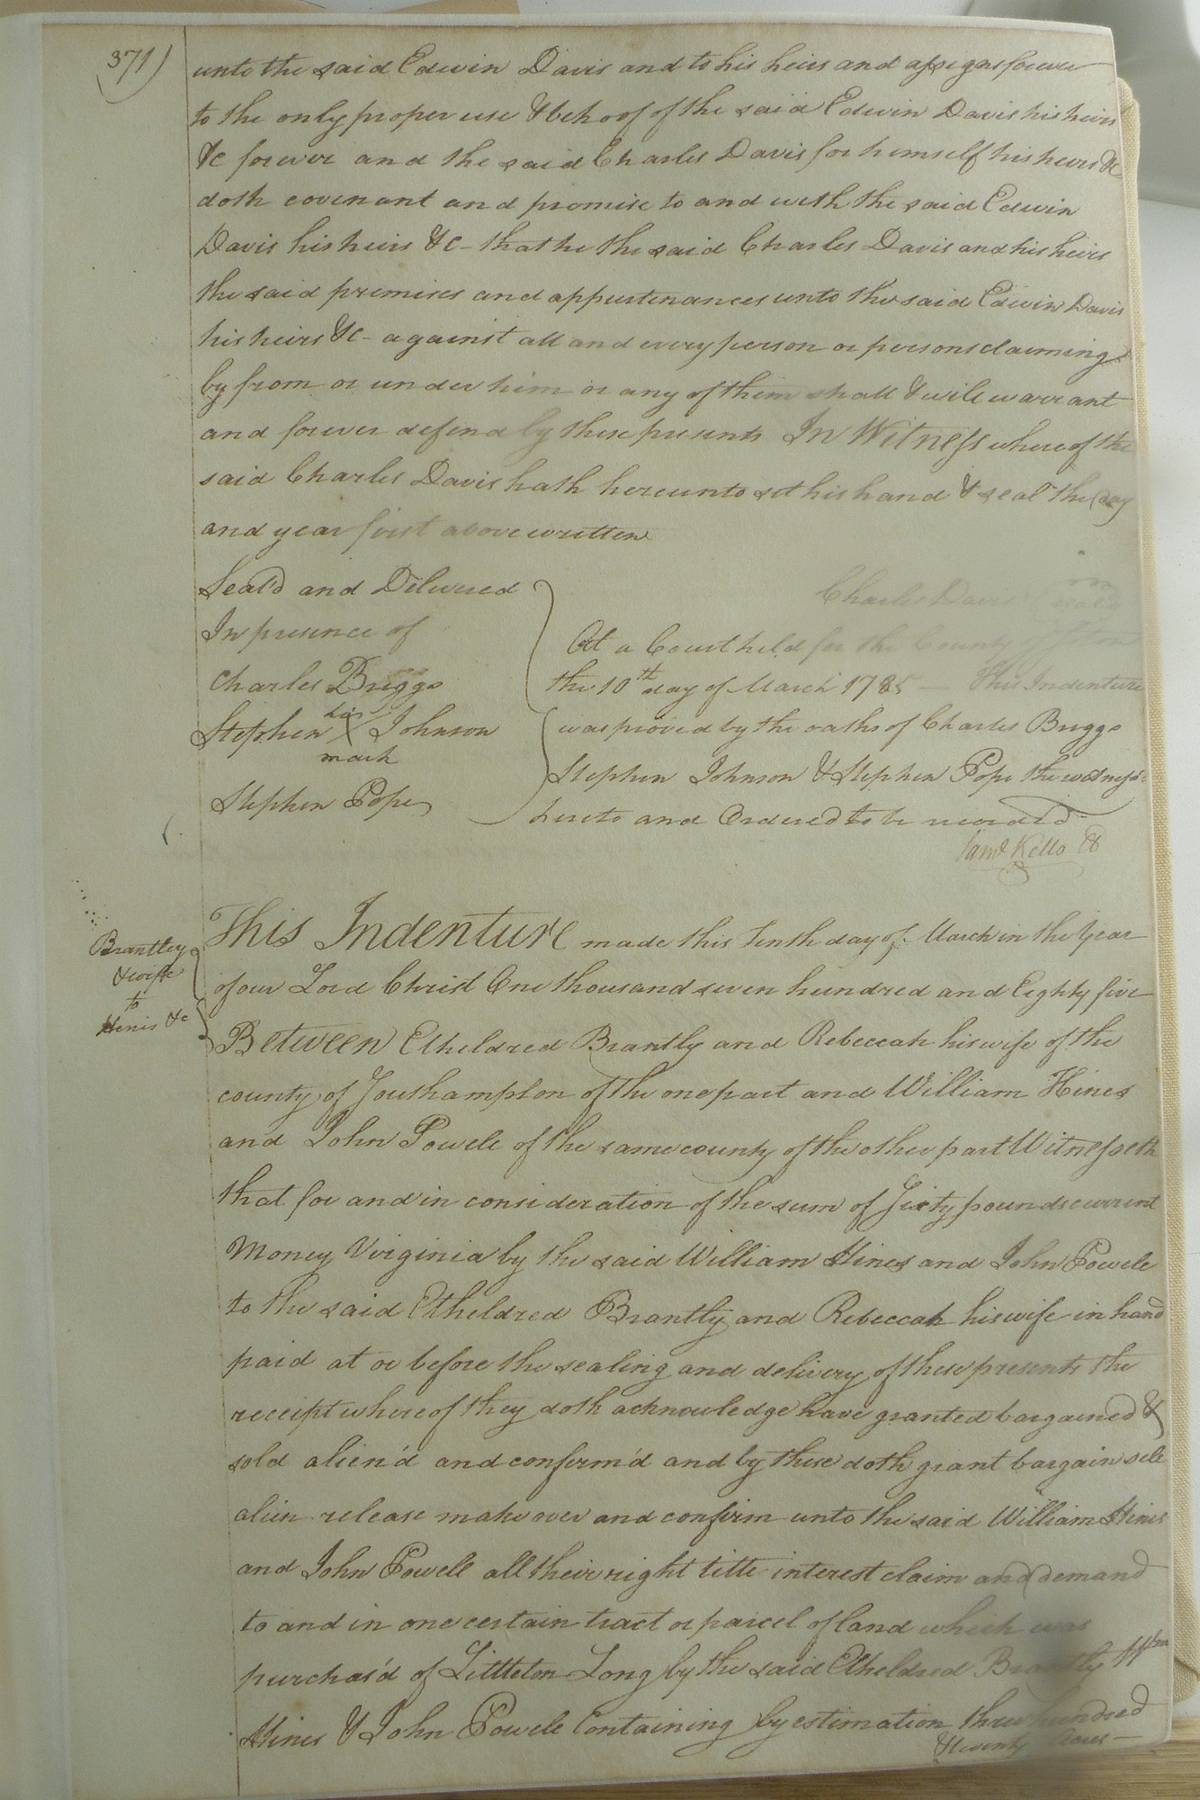 371)
unto the said Edwin Davis and to his heirs and assigns forever
to the only proper use & behoof of the said Edwin Davis his heirs
&c forever and the said Charles Davis for himself his heirs &c
doth covenant and promise to and with the said Edwin
Davis his heirs &c - that he the said Charles Davis and his heirs
the said premises and appurtenances unto the said Edwin Davis
his heirs &c - against all and every person or persons claiming
by from or under him or any of them shall & will warrant
and forever defend by these presents In Witness whereof the
said Charles Davis hath hereunto set his hand & seal the day
and year first above written
Seal'd and Delivered
In presence of
Charles Briggs
Stephen his X mark Johnson
Stephen Pope
Charles Davis seal
At a Court held for the County
the 10th day of March 1785 — This Indenture
was proved by the oaths of Charles Briggs
Stephen Johnson & Stephen Pope the witnesses
hereto and Ordered to be record'd
Saml Kello
Brantley
& wife
to
Hines &c
This Indenture made this tenth day of March in the Year
of our Lord Christ One thousand seven hundred and Eighty five
Between Etheldred Brantly and Rebeccah his wife of the
county of Southampton of the one part and William Hines
and John Powell of the same county of the other part Witnesseth
that for and in consideration of the sum of Sixty pounds current
Money Virginia by the said William Hines and John Powell
to the said Etheldred Brantly and Rebeccah his wife in hand
paid at or before the sealing and delivery of these presents the
receipt whereof they doth acknowledge have granted bargained &
sold alien'd and confirm'd and by these doth grant bargain sell
alien release make over and confirm unto the said William Hines
and John Powell all their right title interest claim and demand
to and in one certain tract or parcel of land which was
purchas'd of Littleton Long by the said Etheldred Brantly Wm
Hines & John Powell Containing by estimation three hundred
& twenty Acres —